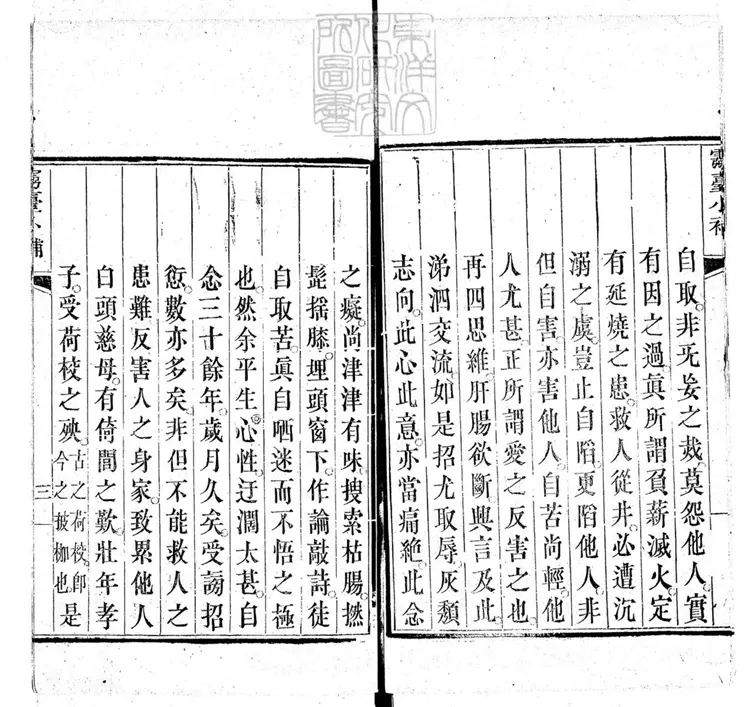 東洋文
化研究
所圖書
靈臺小補
自取。非无妄之烖。莫怨他人。實
有因之過。眞所謂負薪滅火。定
有延燒之患。救人從井。必遭沉
溺之虞。豈止自陷。更陷他人。非
但自害亦害他人。自苦尚輕。他
人尤甚。正所謂愛之反害之也。
再四思維。肝腸欲斷。興言及此。
涕泗交流。如是招尤取辱。灰頹
志向。此心此意。亦當痛絶。此念
之癡。尚津津有味。搜索枯腸。撚
髭搖膝。埋頭窗下。作論敲詩。徒
自取苦。眞自哂迷而不悟之極
也。然余平生。心性。迂濶太甚。自
念三十餘年。歲月久矣。受謗招
愆。數亦多矣。非但不能救人之
患難。反害人之身家。致累他人
白頭慈母。有倚閭之歎。壯年孝
子。受荷校之殃。古之荷校。卽今之披枷也。是
靈臺小補
三